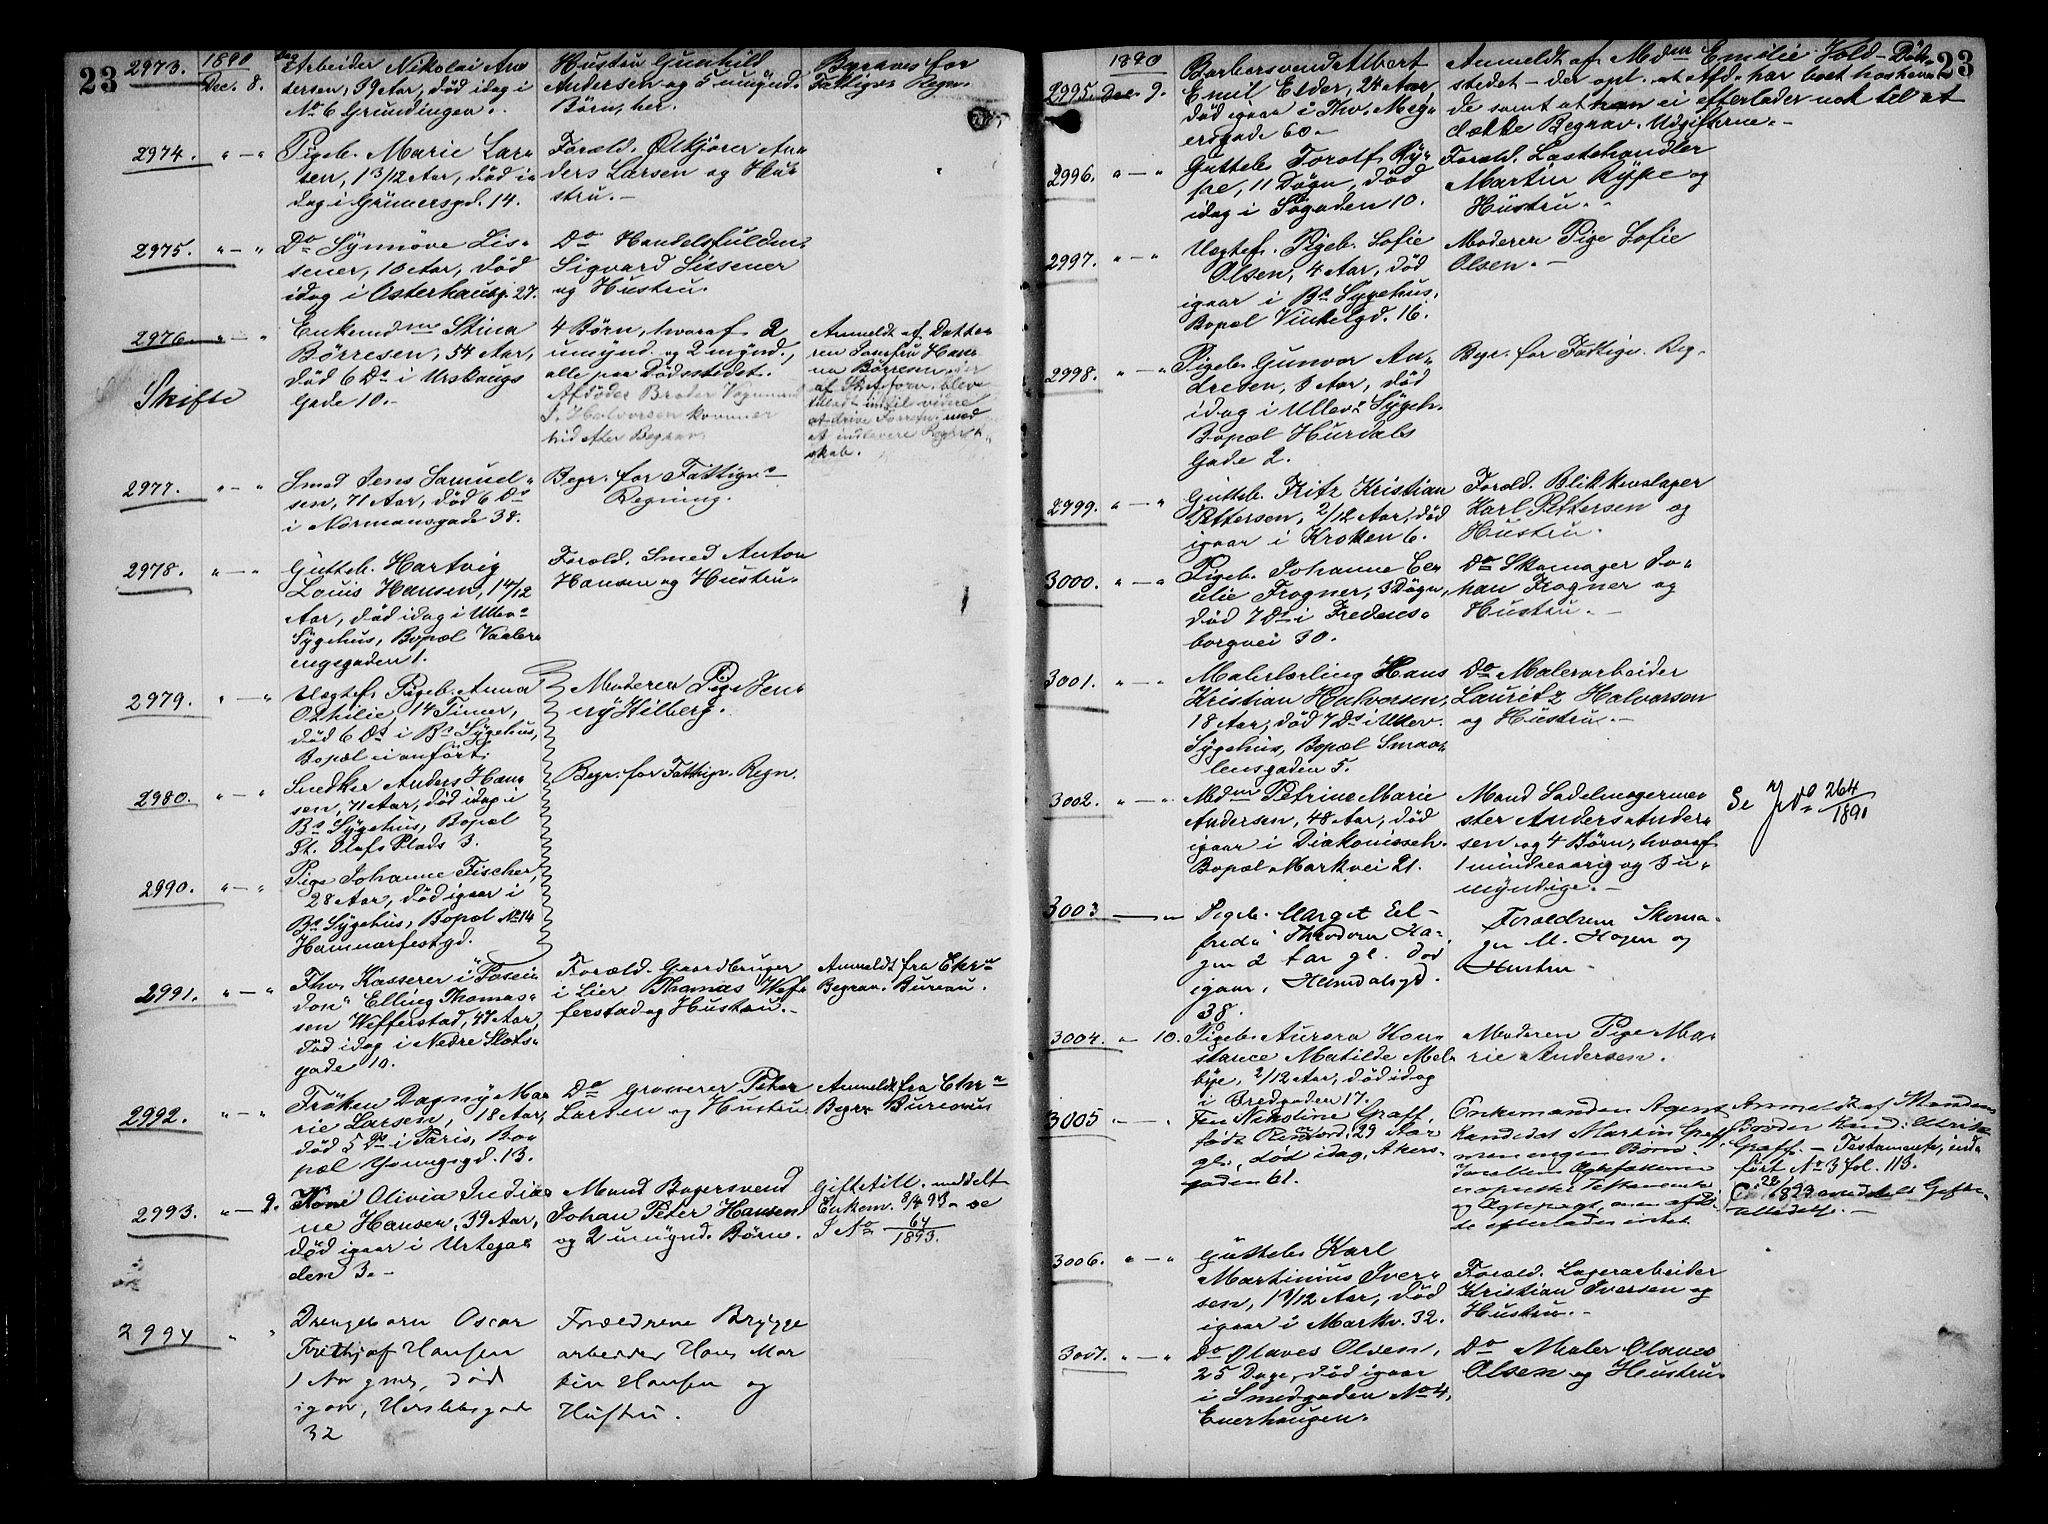 23
2973.
1890
Dec. 8.
Arbeider Nikolai An
dersen, 39 Aar, død idag i
No 6 Grundingen.
Hustru Gunhild
Andersen og 5 umynd.
Børn, her.
Begraves for
Fattigv. Regn.
2974.
" — "
Pigeb. Marie Lar
sen, 1 3/12 Aar, død i
dag i Grünersgd. 14.
Foræld. Ølkjører An
ders Larsen og Hu
stru. -
2975.
" — "
Do Synnöve Lis
sener, 10 Aar, död
idag i Osterhausg. 27.
Do Handelsfuldm.
Sigvard Lissener
og Hustru.
2976.
" — "
Skifte
Enkemdm Stina
Börresen, 54 Aar,
död 6 Ds i Urskougs
Gade 10. -
4 Börn, hvoraf 2
umynd. og 2 mynd.,
alle paa Dødsstedet.
Afdödes Broder Vognmand
J. Halvorsen kommer
hid efter Begrav.
Anmeldt af Datte
ren Jomfru Han
na Börresen, der
af Skifteforv. blev
tilladt indtil videre
at drive Forretn. med
at indlevere Regn
skab.
2977.
" — "
Smed Jens Samuel
sen, 71 Aar, død 6 Ds
i Normansgade 38.
Begr. for Fattigv.
Regning.
2978.
" — "
Gutteb. Hartvig
Louis Hansen, 1 4/12
Aar, død idag i Ullev.
Sygehus, Bopæl Vaaler
engsgaden 1.
Foræld. Smed Anton
Hansen og Hustru.
2979.
" — "
Uægtef. Pigeb. Anna
Othilie, 14 Timer,
död 6 Ds i Bs Sygehus,
Bopæl ei anfört.
Moderen Pige Jen
ny Hilberg.
2980.
" — "
Snedker Anders Han
sen, 71 Aar, død idag i
Bs Sygehus, Bopæl
St. Olafs Plads 3.
Begr. for Fattigv. Regn.
2990.
" — "
Pige Johanne Fischer,
28 Aar, død igaar i
Bs Sygehus, Bopæl No 14
Hammerfestgd.
2991.
" — "
Fhv. Kasserer i "Posei
don" Elling Thomas
sen Wefferstad, 47 Aar,
död idag i Nedre Slots
gade 10.
Foræld. Gaardbruger
i Lier Thomas Wef
ferstad og Hustru. -
Anmeldt fra Chr.
Begrav. Bureau.
2992.
" — "
Fröken Dagny Ma
rie Larsen, 18 Aar,
död 5 Ds i Paris, Bo
pæl Youngsgd. 13.
Do Grosserer Peter
Larsen og Hustru
Anmeldt fra Chr.
Begr. Bureaus
2993.
" — 9.
Kone Olivia India
ne Hansen, 39 Aar,
død igaar i Urtega
den 3. -
Mand Bagersvend
Johan Peter Hansen
og 2 umynd. Børn.
Giftetill. meddelt
Enkem. 8/4 93. se
J No 67/1893.
2994
" "
Drengebarn Oscar
Frithjof Hansen
1 Aar gml, død
igaar, Herslebsgade
32
Forældrene Brygge
arbeider Hans Mar
tin Hansen og
Hustru.
23
1890
2995.
Dec. 9.
Barbersvend Albert
Emil Elder, 24 Aar,
død igaar i Thv. Mey
ersgade 60 -
Anmeldt af Mdm Emilie Vold - Døds
stedet - der opl. at Afd. har boet hos hen
de samt at han ei efterlader nok til at
dække Begrav. Udgifterne. -
2996.
" — "
Gutteb. Torolf Ry
pe, 11 Døgn, død
idag i Søgaden 10.
Foræld. Lastehandler
Martin Rype og
Hustru. -
2997.
" — "
Uægtef. Pigeb. Sofie
Olsen, 4 Aar, død
igaar i Bs Sygehus,
Bopæl Vinkelgd. 16.
Moderen Pige Sofie
Olsen. -
2998.
" — "
Pigeb. Gunvor An
dresen, 8 Aar, død
idag i Ullev. Sygeh.
Bopæl Hurdals
Gade 2.
Begr. for Fattigv. Reg.
2999.
" — "
Gutteb. Fritz Kristian
Pettersen, 2/12 Aar, død
igaar i Kroken 6.
Foræld. Blikkenslager
Karl Pettersen og
Hustru.
3000.
" — "
Pigeb. Johanne Ce
cilie Frogner, 3 Døgn,
död 7 Ds i Fredens
borgvei 30.
Do Skomager Jo
han Frogner og
Hustru. -
3001.
" — "
Malerlærling Hans
Kristian Halvorsen,
18 Aar, død 7 Ds i Ullev.
Sygehus, Bopæl Smaa
lensgaden 5.
Do Malerarbeider
Lauritz Halvorsen
og Hustru. -
3002.
" — "
Mdm Petrine Marie
Andersen, 48 Aar, død
igaar i Diakonisseh.
Bopæl Markvei 21.
Mand Sadelmagerme
ster Anders Ander
sen og 4 Børn, hvoraf
1 mindreaarig og 3 u
myndige. -
Se J No 264/1891
3003
— "
Pigeb. Margit El
frida Theodora Ha
gen 2 Aar gl. død
igaar, Heimdalsgd.
38.
Forældrene Skoma
ger M. Hagen og
Hustru -
3004.
" 10.
Pigeb. Aurora Kon
stance Matilde Mel
bye, 2/12 Aar, død idag
i Bredgaden 17.
Moderen Pige Ma
rie Andersen.
3005
" — "
Fru Nikoline Graff,
født Rustad, 29 Aar
gl., død idag, Akers
gaden 61.
Enkemanden Agent
kandidat Martin Graff,
men ingen Børn.
Anmeldt af Manden
Broder Kand. Ulrik
Graff. - Testamente, ind
ført No 3 fol. 113.
3006.
" — "
Gutteb. Karl
Martinius Iver
sen, 1 1/12 Aar, død
igaar i Markv. 32.
Foræld. Lagerarbeider
Kristian Iversen og
Hustru. -
3007.
" — "
Do Olaves Olsen,
25 Dage, død igaar
i Smedgaden No 4,
Enerhaugen.
Do Maler Olaves
Olsen og Hustru.